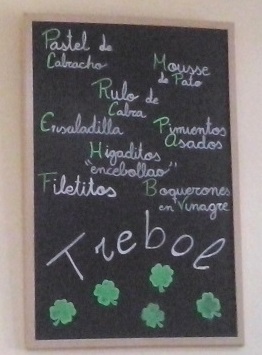 Pastel de
Cabracho
Mousse
de Pato
Rulo de
Cabra
Ensaladilla
Pimientos
Asados
Higaditos
"encebollao"
Filetitos
Boquerones
en Vinagre
Trebol